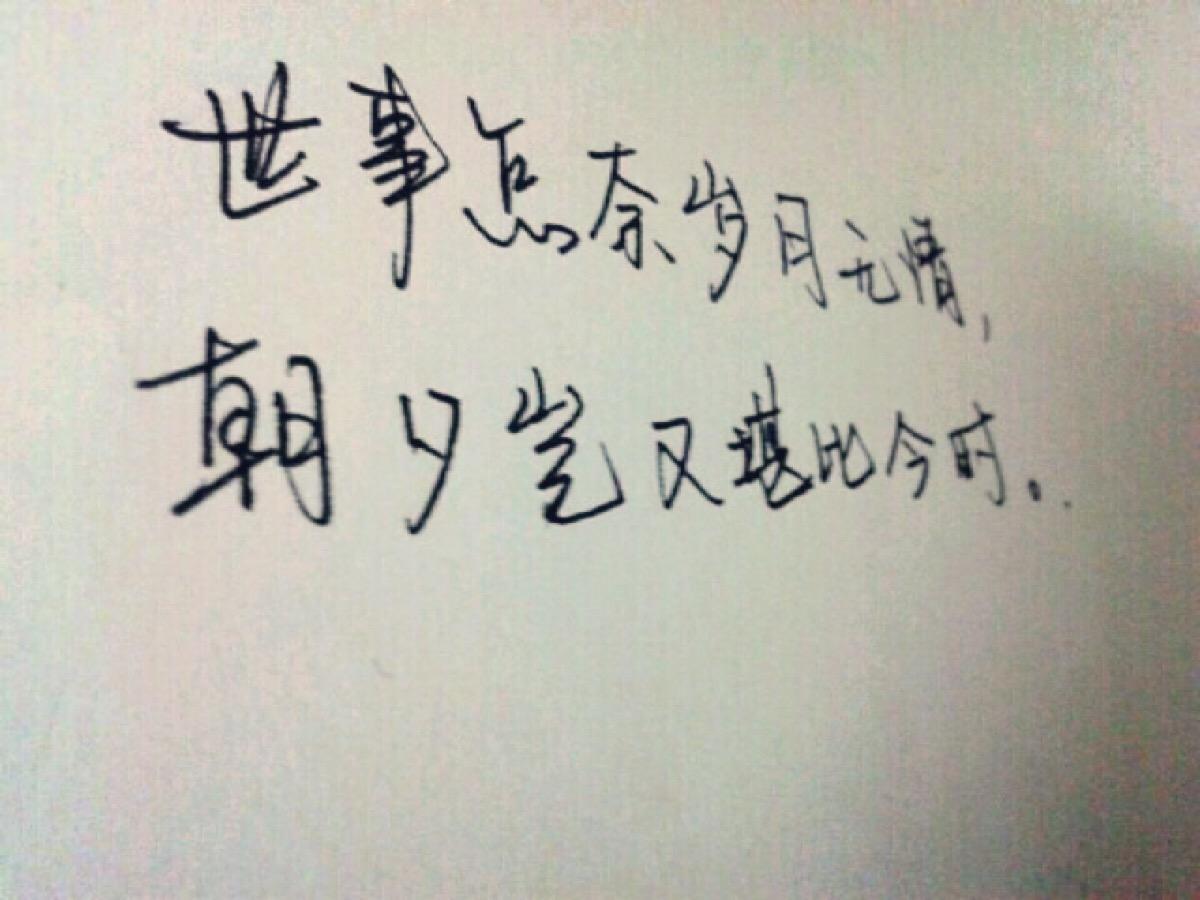 世事怎奈岁月无情,
朝夕岂又堪比今时。